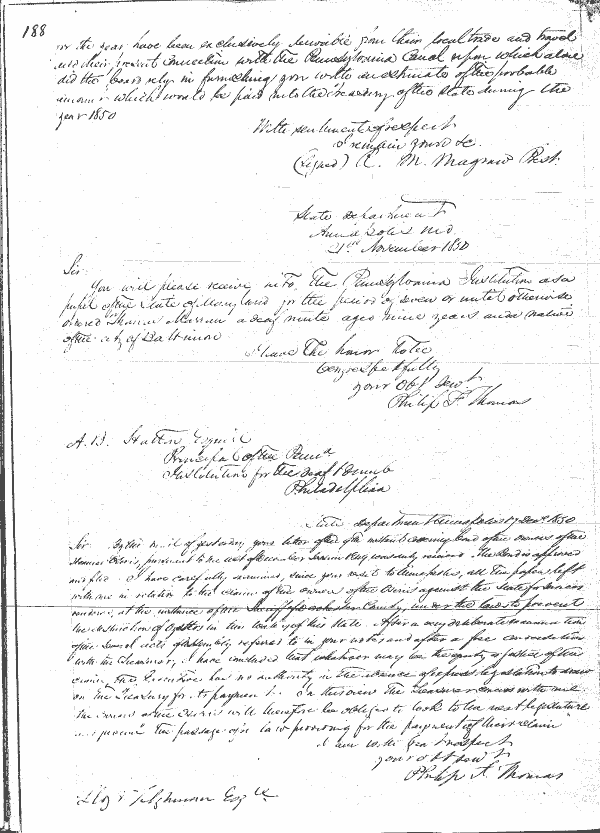 188
or the year, have been exclusively derivable from their local trade and travel
and their present connection with the Pennsylvania Canal upon which alone
did the board rely in furnishing you with an estimate of the probable
income which would be paid into the treasury of the state during the
year 1850
With sentiments of respect
I remain yours &c
(Signed) R. M. Magraw Prest.
State Department
Annapolis Md
21st November 1850
Sir
You will please receive into The Pennsylvania Institution as a
pupil of the State of Maryland for the period of seven or until otherwise
ordered Thomas a deaf mute aged nine years and a native
of the city of Baltimore
I have The honor to be
very respectfully
your Obt Servt
Philip F. Thomas
A. B. Hutton Esquire
Principal of the Penna
Institution for the Deaf & Dumb
Philadelphia
State Department Annapolis 17 Decr 1850
Sir By the mail of yesterday your letter of the instant bond of the owners of the
pursuant to the act of December Session was duly received. The bond is approved
and filed. I have carefully examined, since your visit to Annapolis, all the papers left
with me in relation to the claim of the owners of the against the State for
at the instance of the Sheriff of Dorchester County, under the law to prevent
the destruction of Oysters in the waters of this State. After a very deliberate examination
of the several acts of Assembly referred to in your notes and after a free consultation
with the Treasurer, I have concluded that whatever may be the equity & justice of the
claim, the Executive has no authority in the absence of express legislation to draw
on the Treasury for its payment. In this view the Treasurer concurs with me
the owners of the will therefore be obliged to look to the next legislature
and the passage of a law providing for the payment of their claim
I am with great respect
your obt servt
Philip F. Thomas
Lloyd Tilghman Esqre